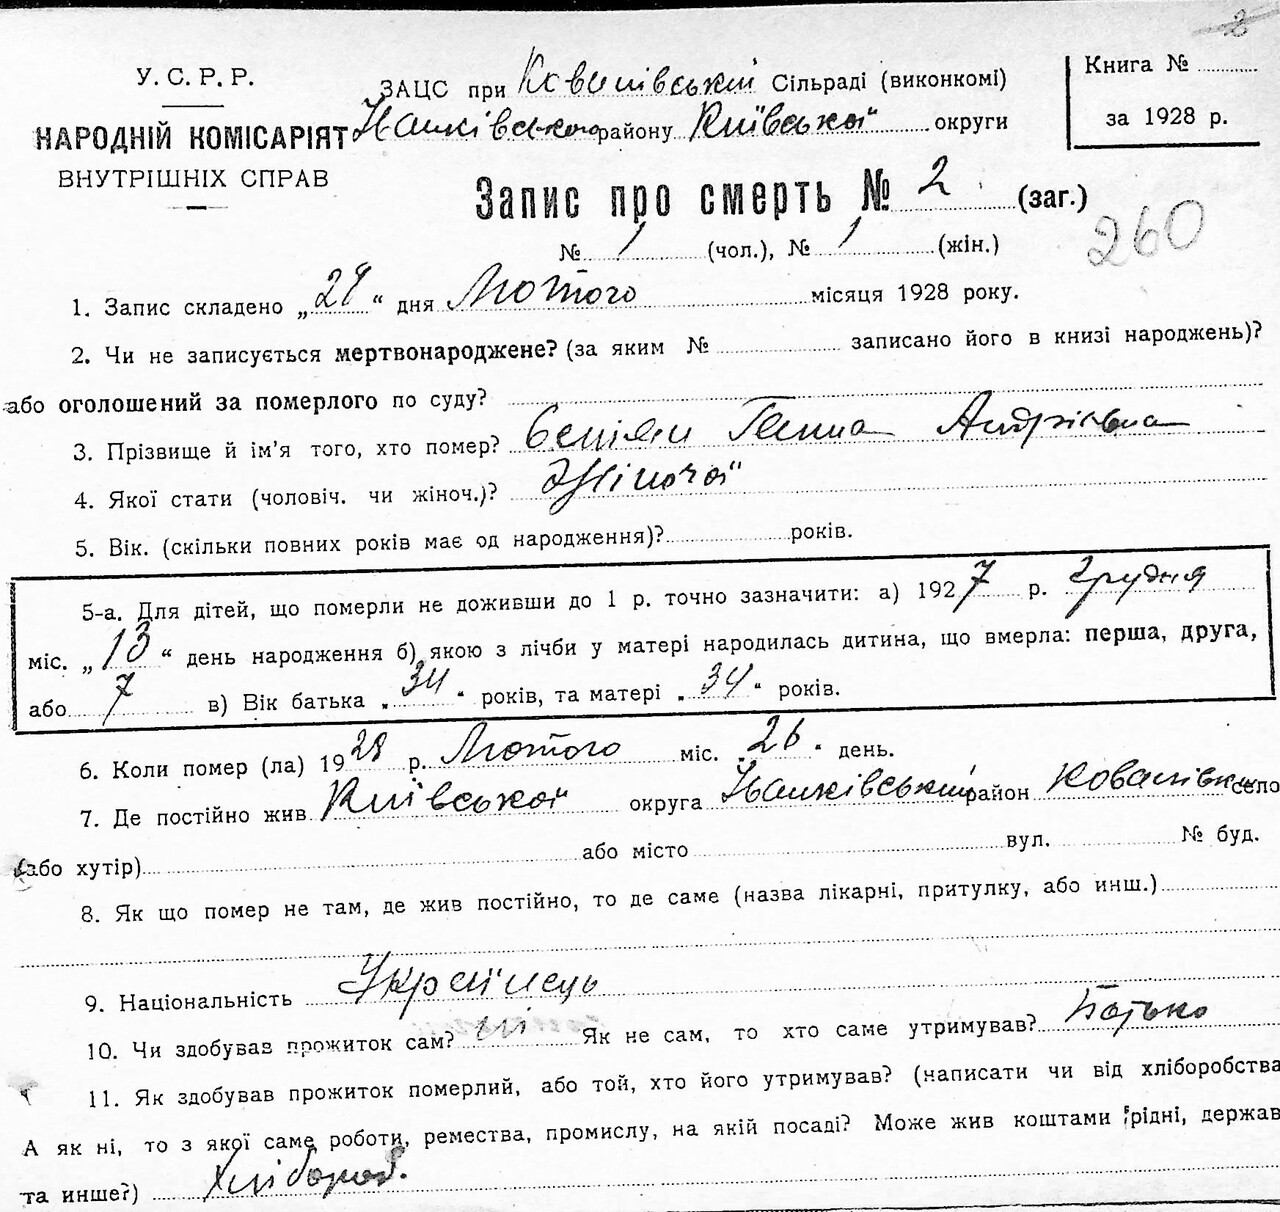 У. С. Р. Р.
НАРОДНІЙ КОМІСАРІЯТ
ВНУТРІШНІХ СПРАВ
ЗАЦС при Ковалівській Сільраді (виконкомі)
Іванківського району Київської округи
Книга №
за 1928 р.
Запис про смерть № 2 (заг.)
260
№ 1 (чол.), № 1 (жін.)
1. Запис складено „ “ дня Лютого місяця 1928 року.
2. Чи не записується мертвонароджене? (за яким № записано його в книзі народжень)?
або оголошений за померлого по суду?
3. Прізвище й ім’я того, хто помер? Ганна Андріївна
4. Якої стати (чоловіч. чи жіноч.)? Жіночої
5. Вік. (скільки повних років має од народження)? років.
5-а. Для дітей, що померли не доживши до 1 р. точно зазначити: а) 1927 р. Грудня
міс. „13“ день народження б) якою з лічби у матері народилась дитина, що вмерла: перша, друга,
або 7 в) Вік батька „34“ років, та матері „34“ років.
6. Коли помер (ла) 1928 р. Лютого міс. 26 день.
7. Де постійно жив Київської округа Іванківський район Ковалівка село
(або хутір) або місто вул. № буд.
8. Як що помер не там, де жив постійно, то де саме (назва лікарні, притулку, або инш.)
9. Національність Українець
10. Чи здобував прожиток сам? ні Як не сам, то хто саме утримував? Батько
11. Як здобував прожиток померлий, або той, хто його утримував? (написати чи від хліборобства
А як ні, то з якої саме роботи, ремества, промислу, на якій посаді? Може жив коштами рідні, держав
та инше?) Хлібороб.